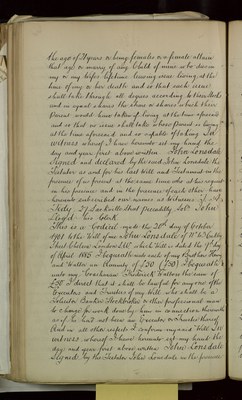 the age of 21 years or being females or a female attain
that age or marry if any Child of mine who dies in
my or my wifes lifetime leaving issue living at the
time of my or her death and so that such issue
shall take through all degrees according to their stocks
and in equal shares the share or shares which their
Parent would have taken if living at the time aforesaid
and so that no issue shall take whose Parent is living
at the time aforesaid and so capable of taking In
witness whereof I have hereunto set my hand the
day and year first above written John Lonsdale
Signed and declared by the said John Lonsdale the
Testator as and for his last Will and Testament in the
presence of us present at the same time who at his request
in his presence and in the presence of each other have
hereunto subscribed our names as witnesses
Street Piccadilly Solr John
Lloyd his Clerk
This is a Codicil made the 20th day of October
to the Will of me John Lonsdale of
Street Chelsea London which Will is dated the 9th day
of April 1885 I bequeath unto each of my Brothers
and Walter an Annuity of £50 I bequeath
unto my Coachman Frederick the sum of
I direct that it shall be lawful for any one of the
Executors and Trustees of my Will who shall be a
Solicitor Banker Stockbroker or other professional man
to charge for work done by him in connection therewith
as if he had not been an Executor or Trustee thereof
And in all other respects I confirm my said Will In
witness whereof I have hereunto set my hand the
day and year first above written John Lonsdale
Signed by the Testator John Lonsdale in the presence